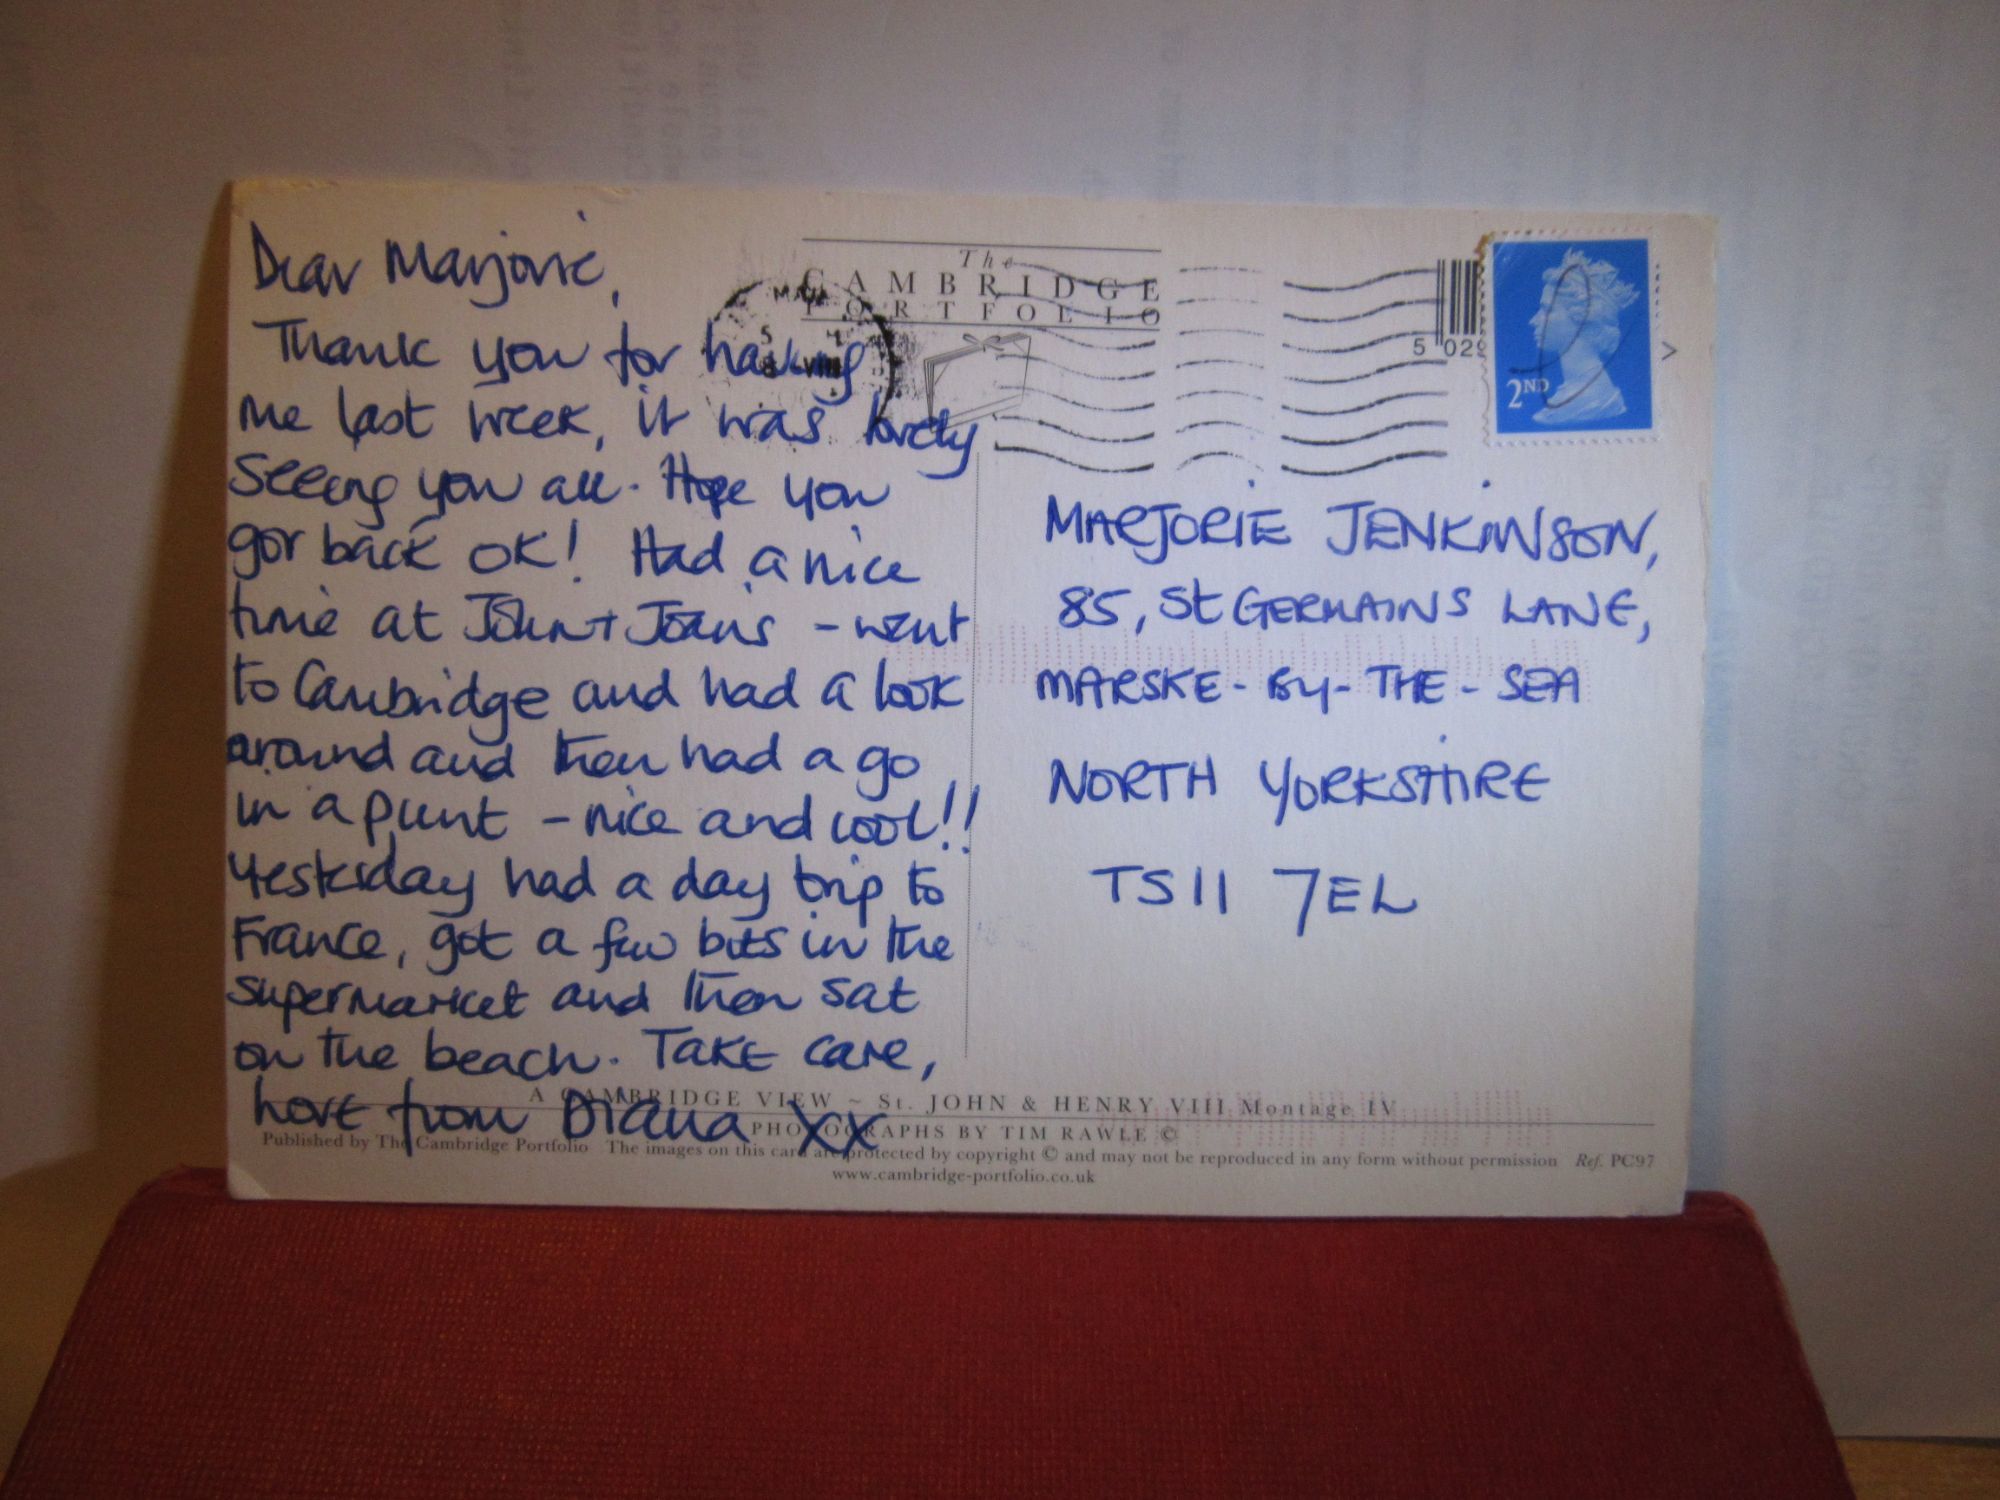 Dear Marjorie,
Thank you for having
me last week, it was lovely
seeing you all. Hope you
got back OK! Had a nice
time at John + Joans - went
to Cambridge and had a look
around and then had a go
in a punt - nice and cool!!
Yesterday had a day trip to
France, got a few bits in the
supermarket and then sat
on the beach. Take care,
Love from Diana XX
The
CAMBRIDGE
PORTFOLIO
5 029
2ND
>
MARJORIE JENKINSON,
85, St GERMAINS LANE,
MARSKE-BY-THE-SEA
NORTH YORKSHIRE
TS11 7EL
A CAMBRIDGE VIEW ~ St. JOHN & HENRY VIII Montage IV
PHOTOGRAPHS BY TIM RAWLE ©
Published by The Cambridge Portfolio The images on this card are protected by copyright © and may not be reproduced in any form without permission Ref. PC97
www.cambridge-portfolio.co.uk